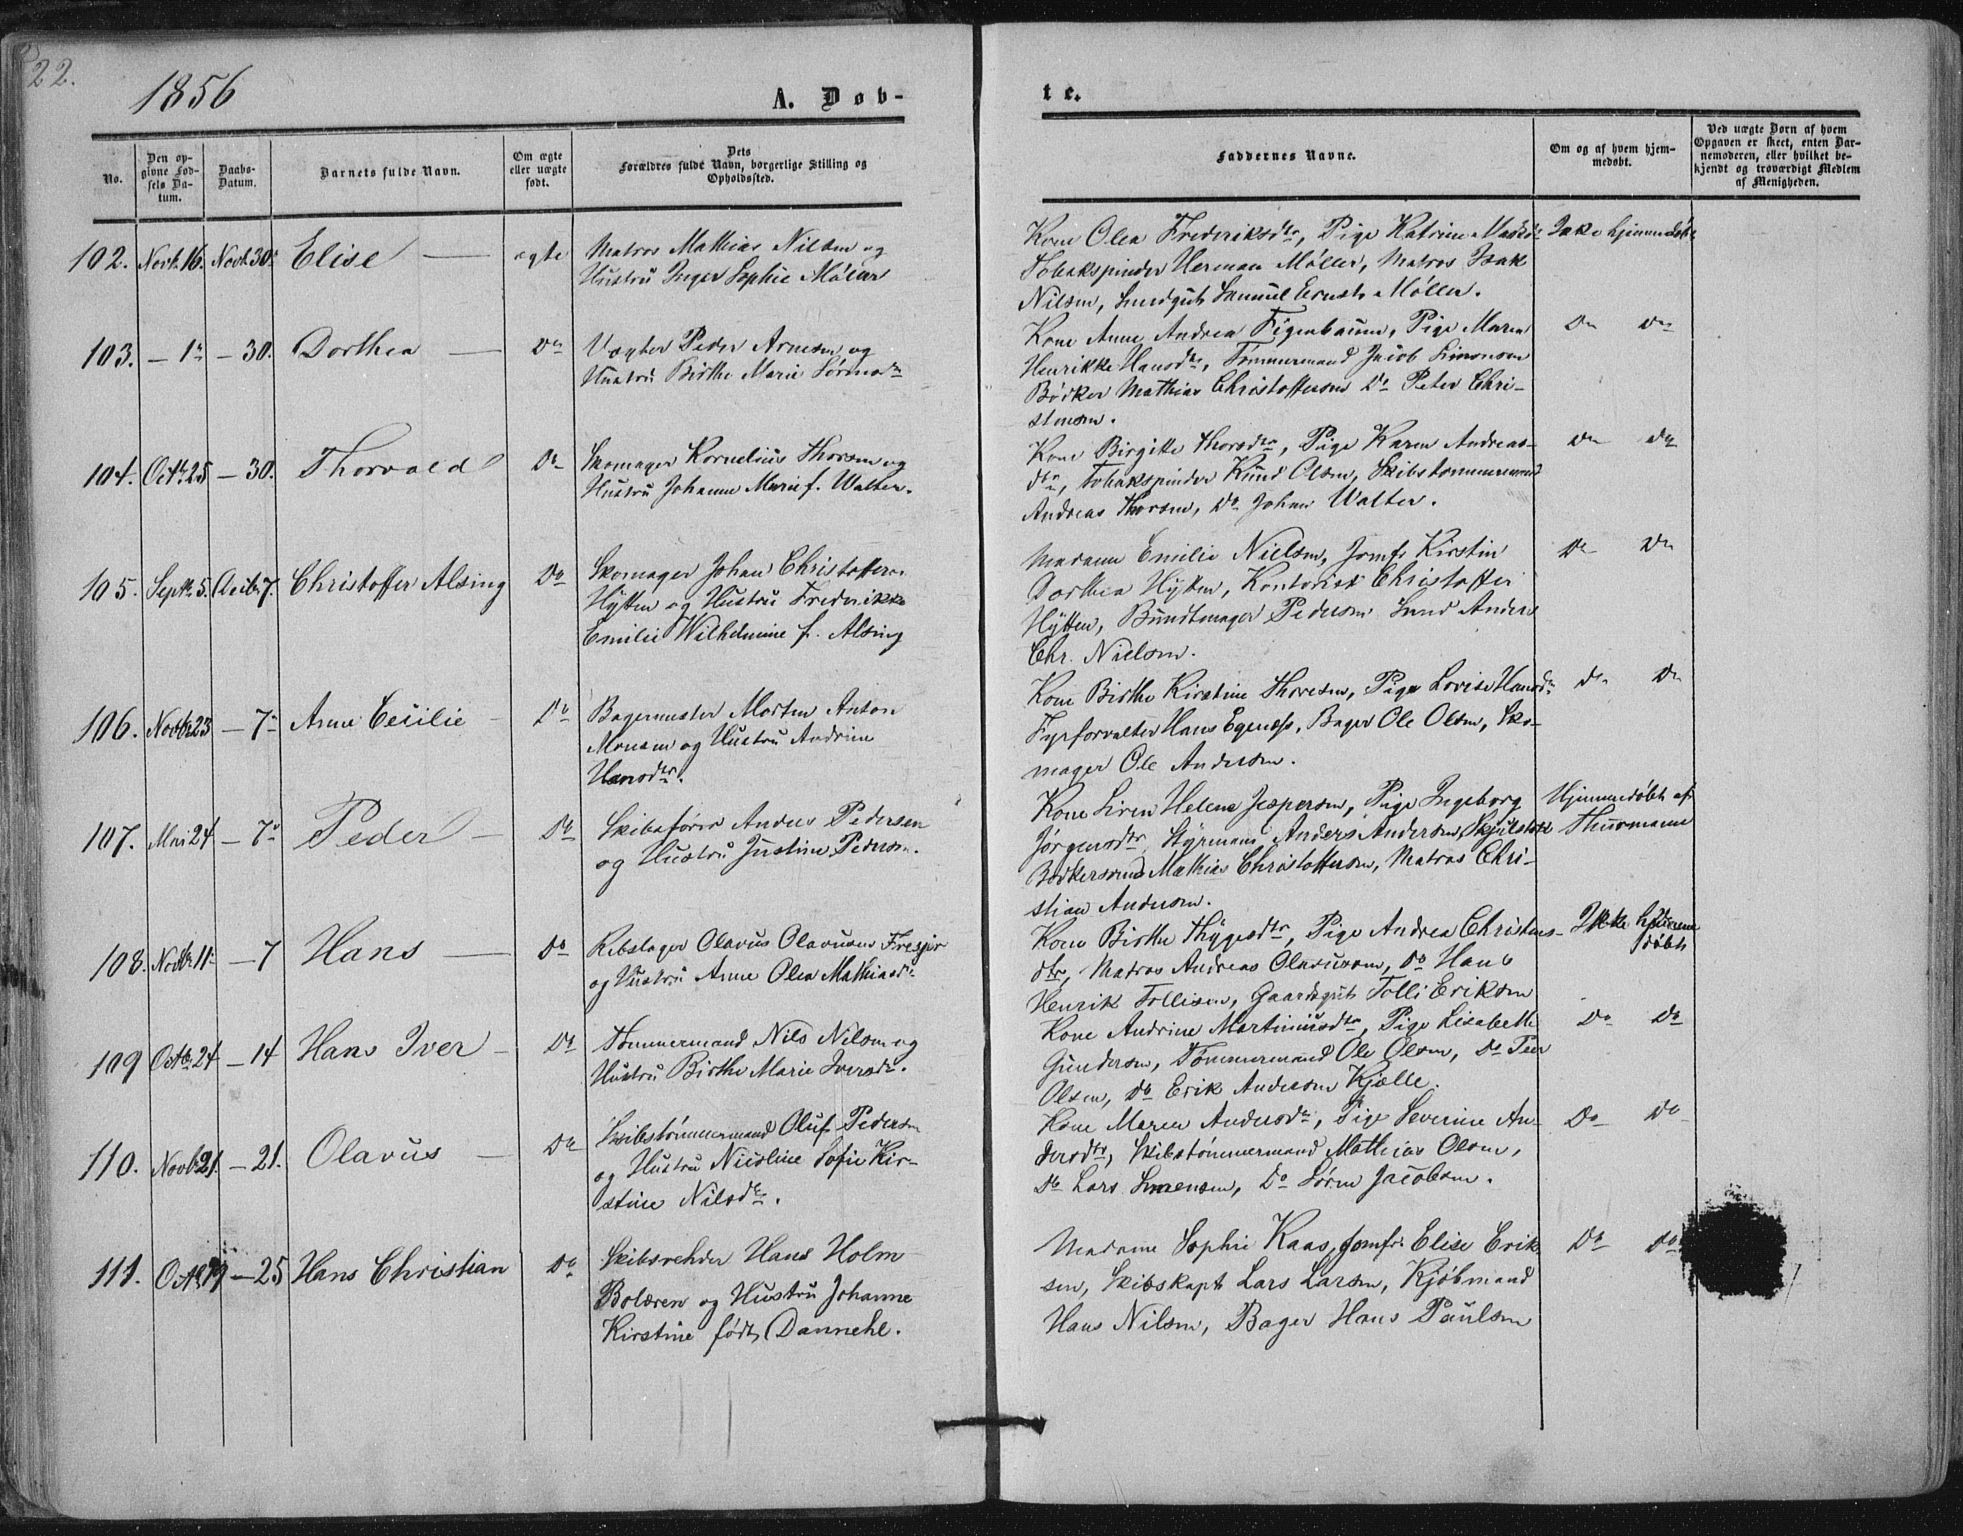 22.
1856
A. Døb-
te.
No.
Den op-
givne Fød-
sels Da-
tum.
Daabs-
Datum.
Barnets fulde Navn.
Om ægte
eller uægte
født.
Dets
Forældres fulde Navn, borgerlige Stilling og
Opholdssted.
Faddernes Navne.
Om og af hvem hjem-
medøbt.
Ved uægte Børn af hvem
Opgaven er skeet, enten Bar-
nemoderen, eller hvilket be-
kjendt og troværdigt Medlem
af Menigheden.
102. Novb. 16. Novb. 30. Elise — ægte
Matros Mathias Nilsen og
Hustru Inger Sophie Møller
Kone Olea Frederiksdtr, Pige Katrine
Tobakspinder Herman Møller, Matros Isak
Nilsen, Samuel Ernst Møller.
Ikke hjemmedøbt
103. — 1 — 30. Dorthea — Do
Vægter Peder Arnesen og
Hustru Birthe Marie
Kone Anne Andrea Figenbaum, Pige Maren
Henrikke Hansdtr, Tømmermand Jacob Simonsen
Bødker Mathias Christoffersen Do Peter Chri-
stensen.
Do Do
104. Octb. 25 — 30. Thorvald Do
Skomager Kornelius Thorsen og
Hustru Johanne Marie f. Walter.
Kone Birgitte Thorsdtr, Pige Karen Andreas-
dtr, Tobakspinder Knud Olsen, Skibstømmermand
Andreas Thorsen, Do Johan Walter.
Do Do
105. Septb. 5. Decbr. 7. Christoffer Alsing Do
Skomager Johan Christoffer
Hÿtten og Hustru Fredrikke
Emilie Wilhelmine f. Alsing
Madam Emilie Nielsen, Jomfr Kirstin
Dorthea Hÿtten, Kontorist Christoffer
Hÿtten, Bundtmager Pedersen Anders
Chr. Nielsen.
Do Do
106. Novbr 23 — 7 Anne Cecilie — Do
Bagermester Morten Anton
Monsen og Hustru Andrine
Hansdtr.
Kone Birthe Kirstine Thoresen, Pige Lovise Hansdtr
Fyrforvalter Hans Egenæss, Bager Ole Olsen, Sko-
mager Ole Andersen.
Do Do
107. Mai 24 — 7 Peder — Do
Skibsfører Anders Pedersen
og Hustru Justine Pedersen.
Kone Siren Helene Jespersen, Pige Ingeborg
Jørgensdtr, Styrmand Anders Andersen
Bødkersvend Mathias Christoffersen, Matros Chri-
stian Andersen.
Hjemmedøbt af
Thurmann
108. Novbr 11 — 7 Hans — Do
Rebslager Olavus Olavusen Fresjer
og Hustru Anne Olea Mathiasdtr
Kone Birthe Thÿgesdtr, Pige Andrea Christens-
dtr, Matros Andreas Olavusen, Do Hans
Henrik Tollisen, Gaardsgut Tolli Eriksen
Ikke hjemme
døbt
109 Octb. 24 — 14 Hans Iver — Do
Tømmermand Nils Nilsen og
Hustru Birthe Marie Iversdtr.
Kone Andrine Martiniusdtr, Pige Lisabeth
Gundersen, Tømmermand Ole Olsen, Do Peer
Olsen, Do Erik Andersen Kjælle.
Do Do
110. Novb. 21. — 21. Olavus — Do
Skibstømmermand Oluf Pedersen
og Hustru Nicoline Sofie Kir-
stine Nilsdtr.
Kone Maren Andersdtr, Pige Severine An-
dersdtr, Skibstømmermand Mathias Olsen,
Do Lars Sørensen, Do Søren Jacobsen.
Do Do
111. Octb. — 25 Hans Christian Do
Skibsrehder Hans Holm
Bolæren og Hustru Johanne
Kirstine født Dannehl.
Madame Sophie Kaas, Jomfr. Elise Erik-
sen, Skibskapt Lars Larsen, Kjøbmand
Hans Nilsen, Bager Hans Paulsen
Do Do